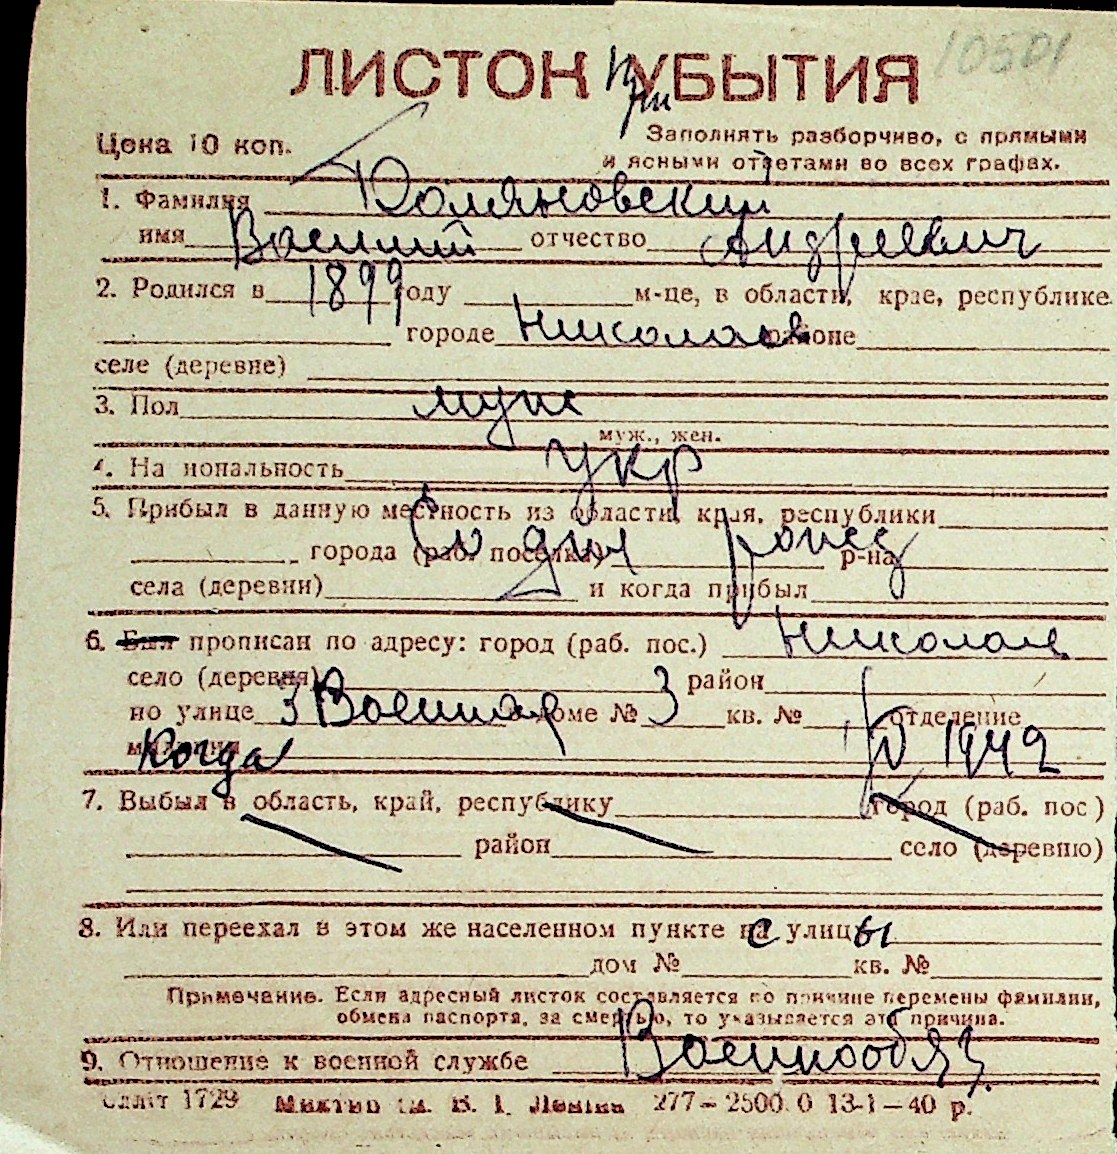 10501
ЛИСТОК При УБЫТИЯ
Цена 10 коп. Заполнять разборчиво, с прямыми
и ясными ответами во всех графах.
1. Фамилия Доляновский
имя Василий отчество Андреевич
2. Родился в 1899 году м-це, в области, крае, республике
городе Николаев районе
селе (деревне)
3. Пол муж
муж., жен.
4. Национальность укр
5. Прибыл в данную местность из области, края, республики
города (раб. поселка) Со дня рожд р-на
села (деревни) и когда прибыл
6. Был прописан по адресу: город (раб. пос.) Николаев
село (деревня) район
по улице 3 Военная в доме № 3 кв. № отделение
милиции Когда IV 1942
7. Выбыл в область, край, республику город (раб. пос)
район село (деревню)
8. Или переехал в этом же населенном пункте на с улицы
дом № кв. №
Примечание. Если адресный листок составляется по причине перемены фамилии,
обмена паспорта, за смертью, то указывается эта причина.
9. Отношение к военной службе Военнообяз.
1729 В. І. Леніна 277–2500.0 13-1–40 р.